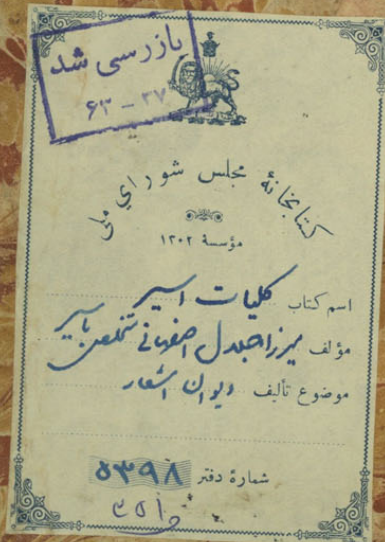 بازرسی شد
۶۳ - ۳۷
کتابخانهٔ مجلس شورای ملی
مؤسسهٔ ۱۳۰۲
اسم کتاب کلیات اسیر
مؤلف میرزا جلال اصفهانی متخلص باسیر
موضوع تألیف دیوان اشعار
شمارهٔ دفتر ۵۳۹۸